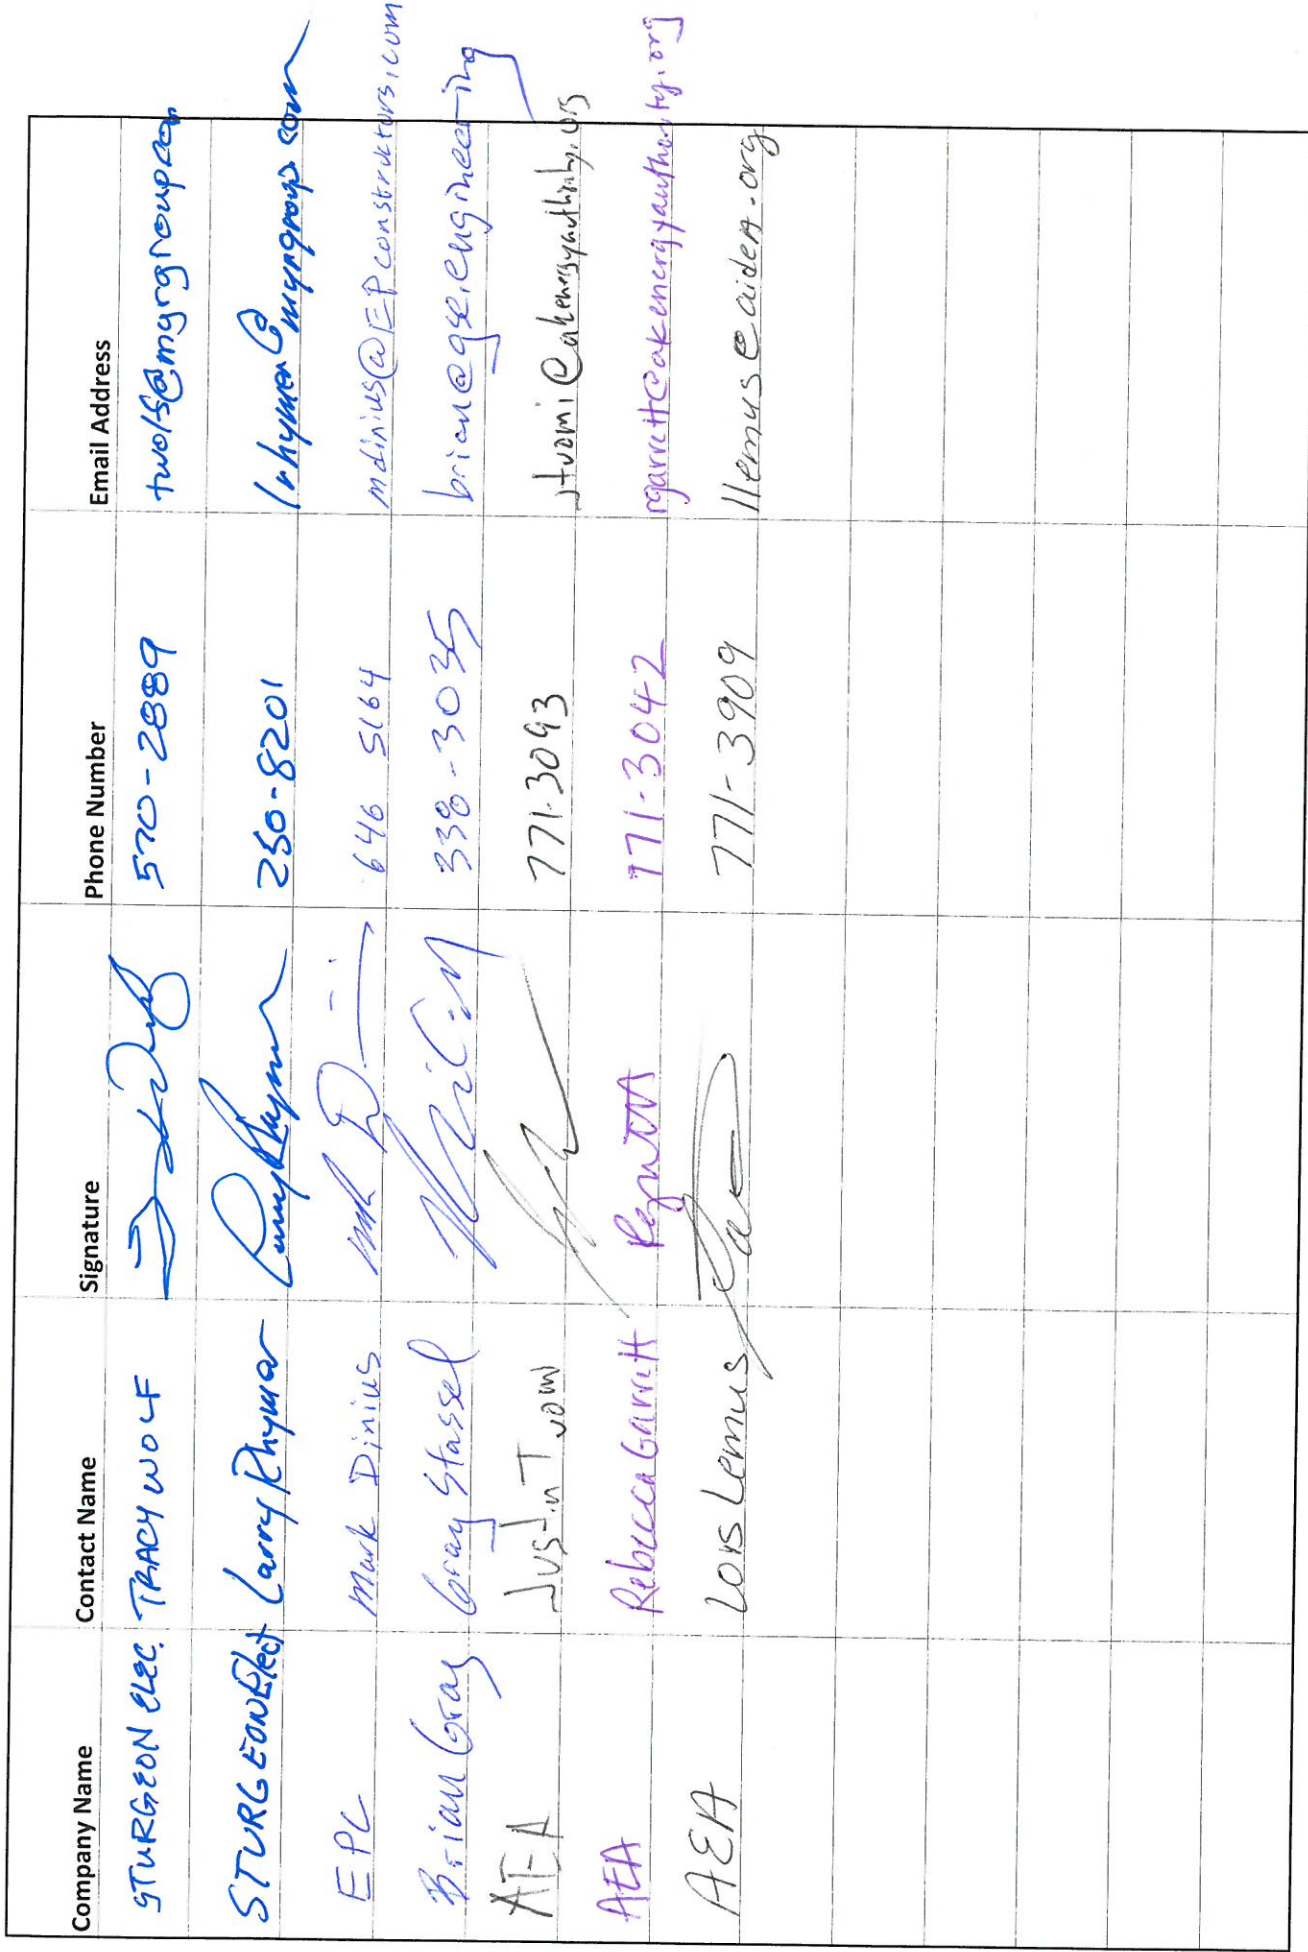 Company Name Contact Name Signature Phone Number Email Address
STURGEON ELEC. TRACY WOLF 570-2889 twolf@myrgroup.com
STURGEON Elect Larry Rhymer 250-8201 lrhymer@myrgroup.com
EPC Mark Dinius 646 5164 mdinius@EPconstructors.com
Brian Gray Gray Stassel 338-3035 brian@gse.engineering
AEA Justin Tuomi 771-3093 jtuomi@akenergyauthority.org
AEA Rebecca Garrett 771-3042 rgarrett@akenergyauthority.org
AEA Lois Lemus 771-3909 llemus@aidea.org